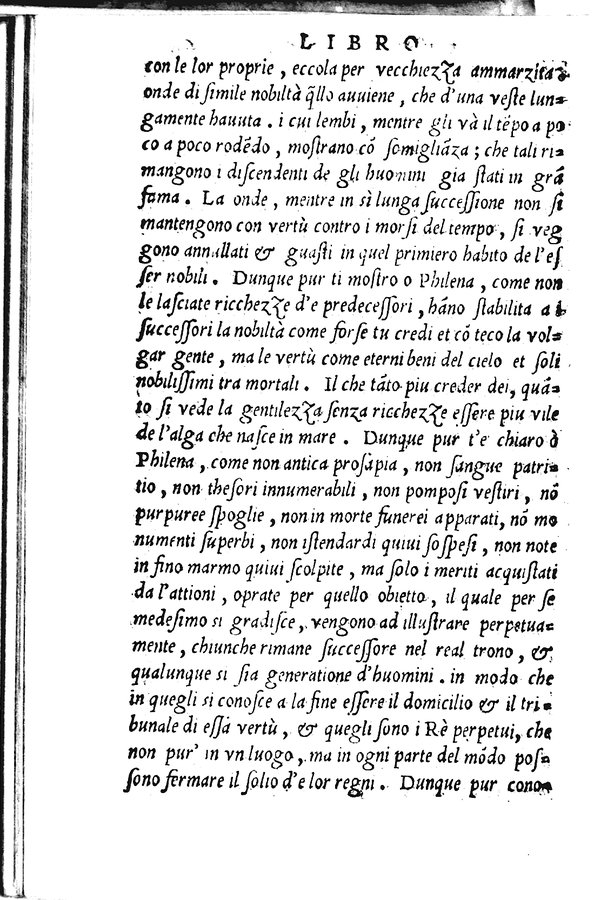 LIBRO
con le lor proprie, eccola per vecchiezza ammarzita:
onde di ſimile nobiltà q̃llo auuiene, che d'una veſte lun=
gamente hauuta. i cui lembi, mentre gli và il tẽpo a po
co a poco rodẽdo, moſtrano cõ ſomigliãza; che tali ri=
mangono i diſcendenti de gli huomini gia ſtati in grã
fama. La onde, mentre in sì lunga ſucceſſione non ſi
mantengono con vertù contro i morſi del tempo, ſi veg
gono annullati & guaſti in quel primiero habito de l'eſ
ſer nobili. Dunque pur ti moſtro o Philena, come non
le laſciate ricchezze d'e predeceſſori, hãno ſtabilita a i
ſucceſſori la nobiltà come forſe tu credi et cõ teco la vol=
gar gente, ma le vertù come eterni beni del cielo et ſoli
nobiliſſimi tra mortali. Il che tãto piu creder dei, quã=
to ſi vede la gentilezza ſenza ricchezze eſſere piu vile
de l'alga che naſce in mare. Dunque pur t'e chiaro ò
Philena, come non antica proſapia, non ſangue patri=
tio, non theſori innumerabili, non pompoſi veſtiri, nõ
purpuree ſpoglie, non in morte funerei apparati, nõ mo
numenti ſuperbi, non iſtendardi quiui ſoſpeſi, non note
in fino marmo quiui ſcolpite, ma ſolo i meriti acquiſtati
da l'attioni, oprate per quello obietto, il quale per ſe
medeſimo si gradiſce, vengono ad illuſtrare perpetua=
mente, chiunche rimane ſucceſſore nel real trono, &
qualunque si ſia generatione d'huomini. in modo che
in quegli si conoſce a la fine eſſere il domicilio & il tri=
bunale di eſſa vertù, & quegli ſono i Rè perpetui, che
non pur' in vn luogo, ma in ogni parte del mõdo poſ=
ſono fermare il ſolio d'e lor regni. Dunque pur cono=